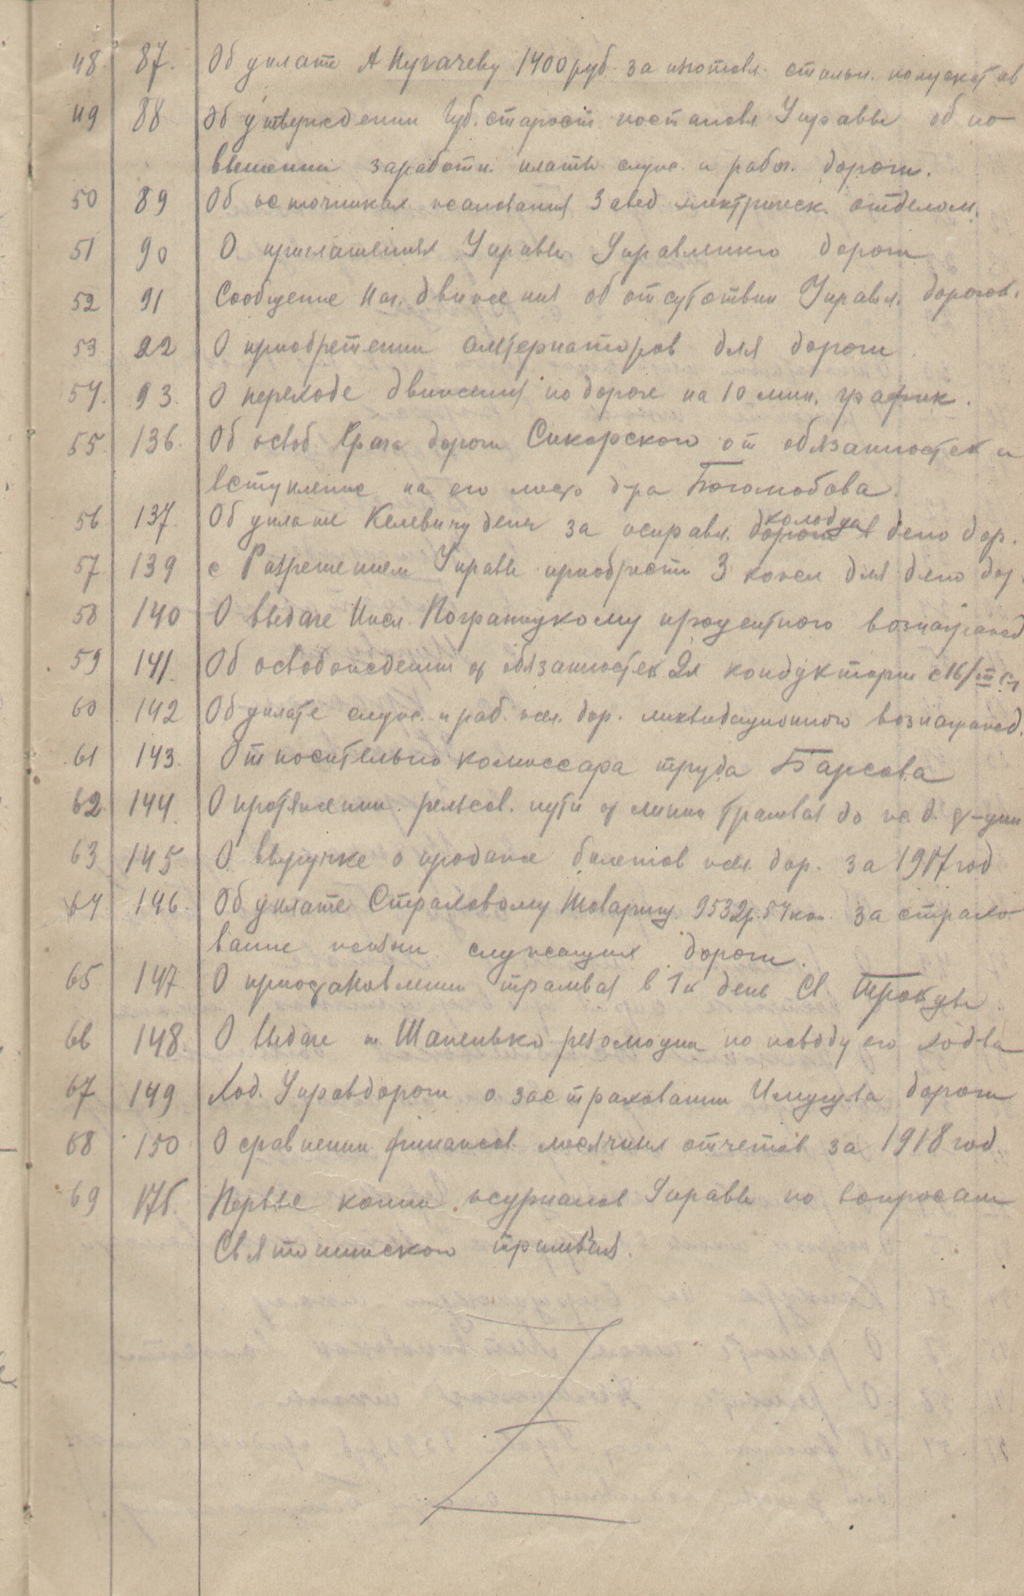 48. 87. Об уплате А Пугачеву 1400 руб. за изготовл. стальн. полускатов
49 88 Об утверждении Губ. старост. постановл Управы об по-
вышении заработн. платы служ. и рабоч. дороги.
50 89 Об источниках Завед электрическ. отделом.
51 90 О приглашениях Управы Управлению дороги
52 91 Сообщение Нач. движения об отсутствии Управл. дорогов.
53 92 О приобретении альтернаторов для дороги
54. 93. О переходе движения по дороге на 10 мин. график.
55 136. Об освоб Врача дороги Сикорского от обязанностей и
вступление на его место д-ра Богомобова.
56 137. Об уплате Келевичу денег за исправл. колодца в депо дор.
57. 139 с Разрешением Управы приобрести 3 для депо дор.
58 140 О выдаче Инж. Пограницкому процентного вознагражд
59 141. Об освобождении от обязанностей 2х кондукторш с 16/III с.г
60 142 Об уплате служ. и раб. жел. дор. ликвидационного вознагражд.
61 143. Относительно комиссара труда Барсова
62 144. О протяжении рельсов. пути от линии трамвая до ж. д.
63 145 О выручке о продаже билетов жел. дор. за 1917 год
64 146. Об уплате Страховому Товарищ. 9532р. 54 коп. за страхо-
вание жизни служащих дороги.
65 147 О приостановлении трамвая в 1й день Св. Троицы.
66 148. О выдаче п. Шапенько резолюции по поводу его ход-ва
67 149 Ход. Управдороги о застраховании Имущ-ва дороги
68 150 О сравнении финансов. месячных отчетов за 1918 год.
69 175. Первые копии журналов Управы по вопросам
Святошинского трамвая.